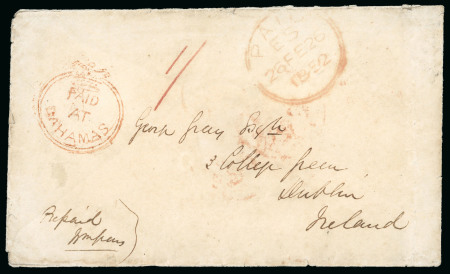 1/
PAID
AT
BAHAMAS
PAID
26 FE 26
1852
Geor Gray Esqre
3 College Green
Dublin
Ireland
Prepaid